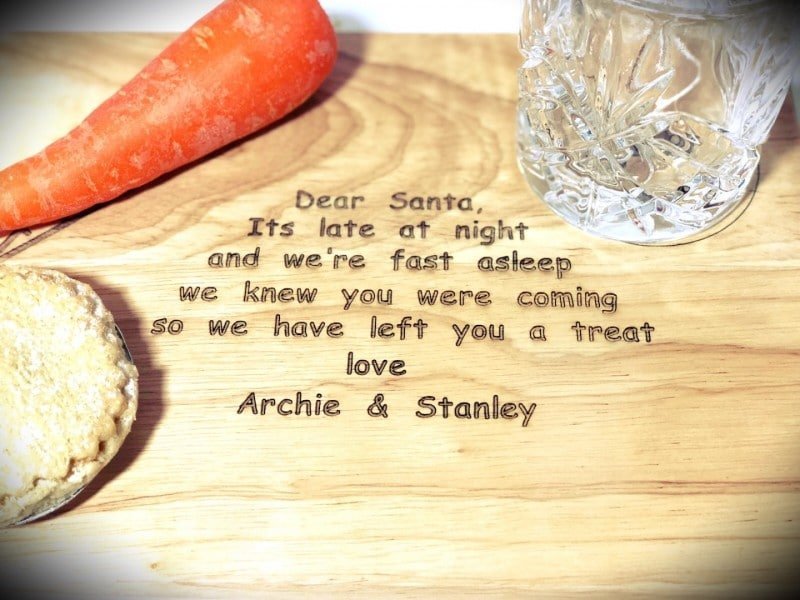 Dear Santa,
Its late at night
and we're fast asleep
we knew you were coming
so we have left you a treat
love
Archie & Stanley